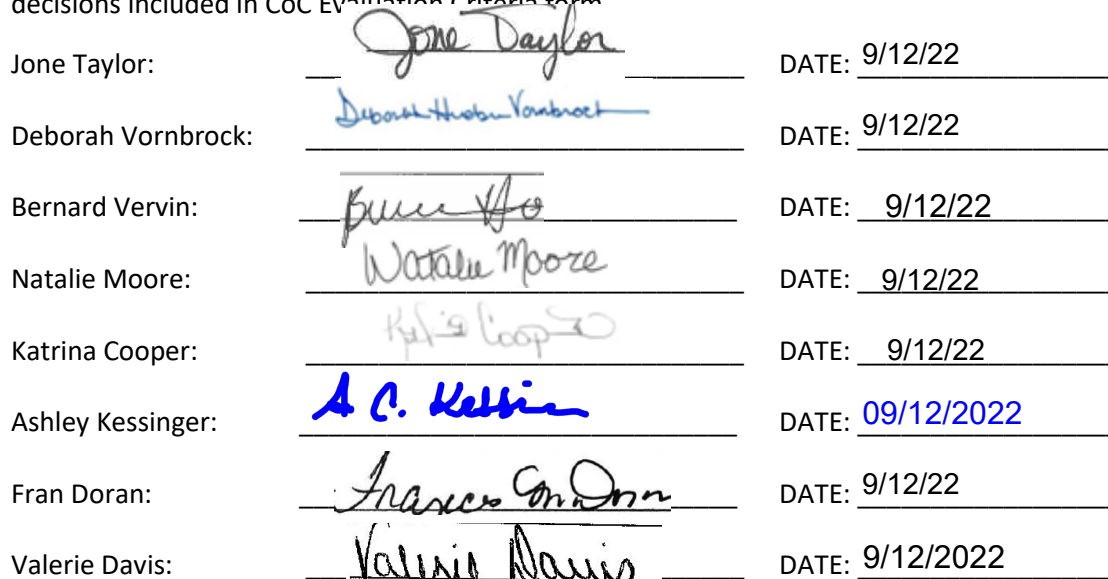 decisions included in CoC Evaluation Criteria form
Jone Taylor: Jone Taylor DATE: 9/12/22
Deborah Vornbrock: Deborah Vornbrock DATE: 9/12/22
Bernard Vervin: DATE: 9/12/22
Natalie Moore: Natalie Moore DATE: 9/12/22
Katrina Cooper: DATE: 9/12/22
Ashley Kessinger: A C. DATE: 09/12/2022
Fran Doran: Frances DATE: 9/12/22
Valerie Davis: Valerie Davis DATE: 9/12/2022